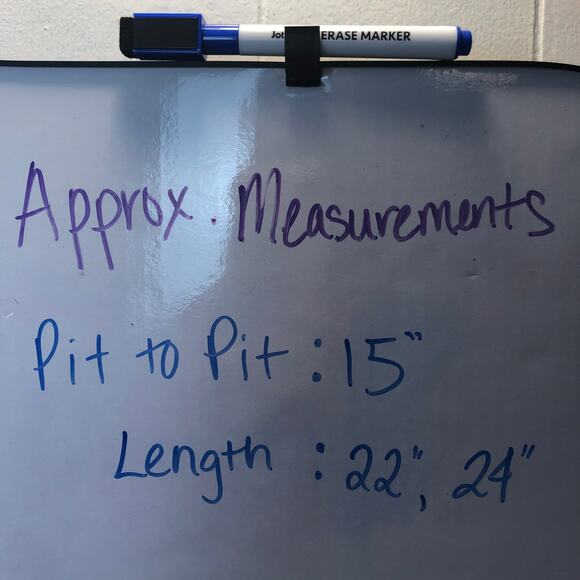 ERASE MARKER
Approx. Measurements
Pit to Pit : 15"
Length : 22", 24"